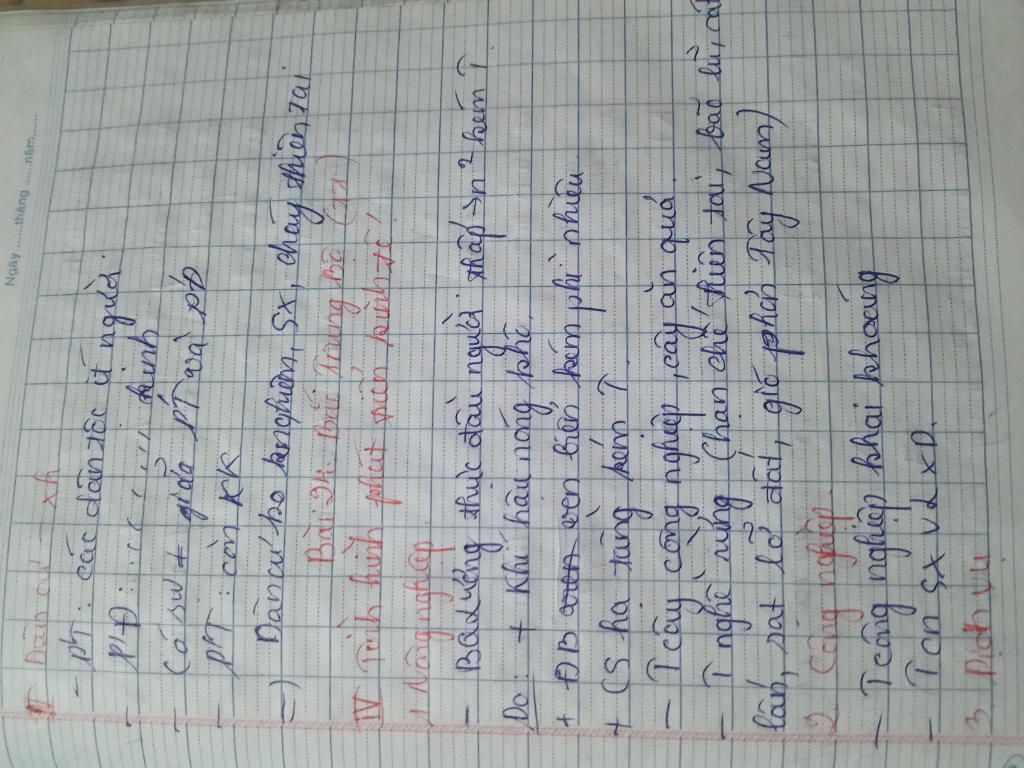 Ngày ..... tháng ..... năm .....
III Dân cư - xh
- PT: các dân tộc ít người.
- PĐ: : : : : kinh
- Có sự ≠ giữa PT và PĐ
- PT: còn KK
=) Dân cư sx, cháy thiên tai
Bài 24: Bắc Trung Bộ (TT)
IV Tình hình phát triển kinh tế
1, Nông nghiệp
- BQ lương thực đầu người thấp → n² kém T
Do: + Khí hậu nóng khô.
+ ĐB ven biển kém phì nhiêu
+ CS hạ tầng kém T
- T cây công nghiệp, cây ăn quả.
- T nghề rừng (hạn chế thiên tai, bão lũ, cát
lấn, sạt lở đất, gió phơn Tây Nam)
2 Công nghiệp
- T công nghiệp khai khoáng
- T cn sx VLXD.
3 Dịch vụ